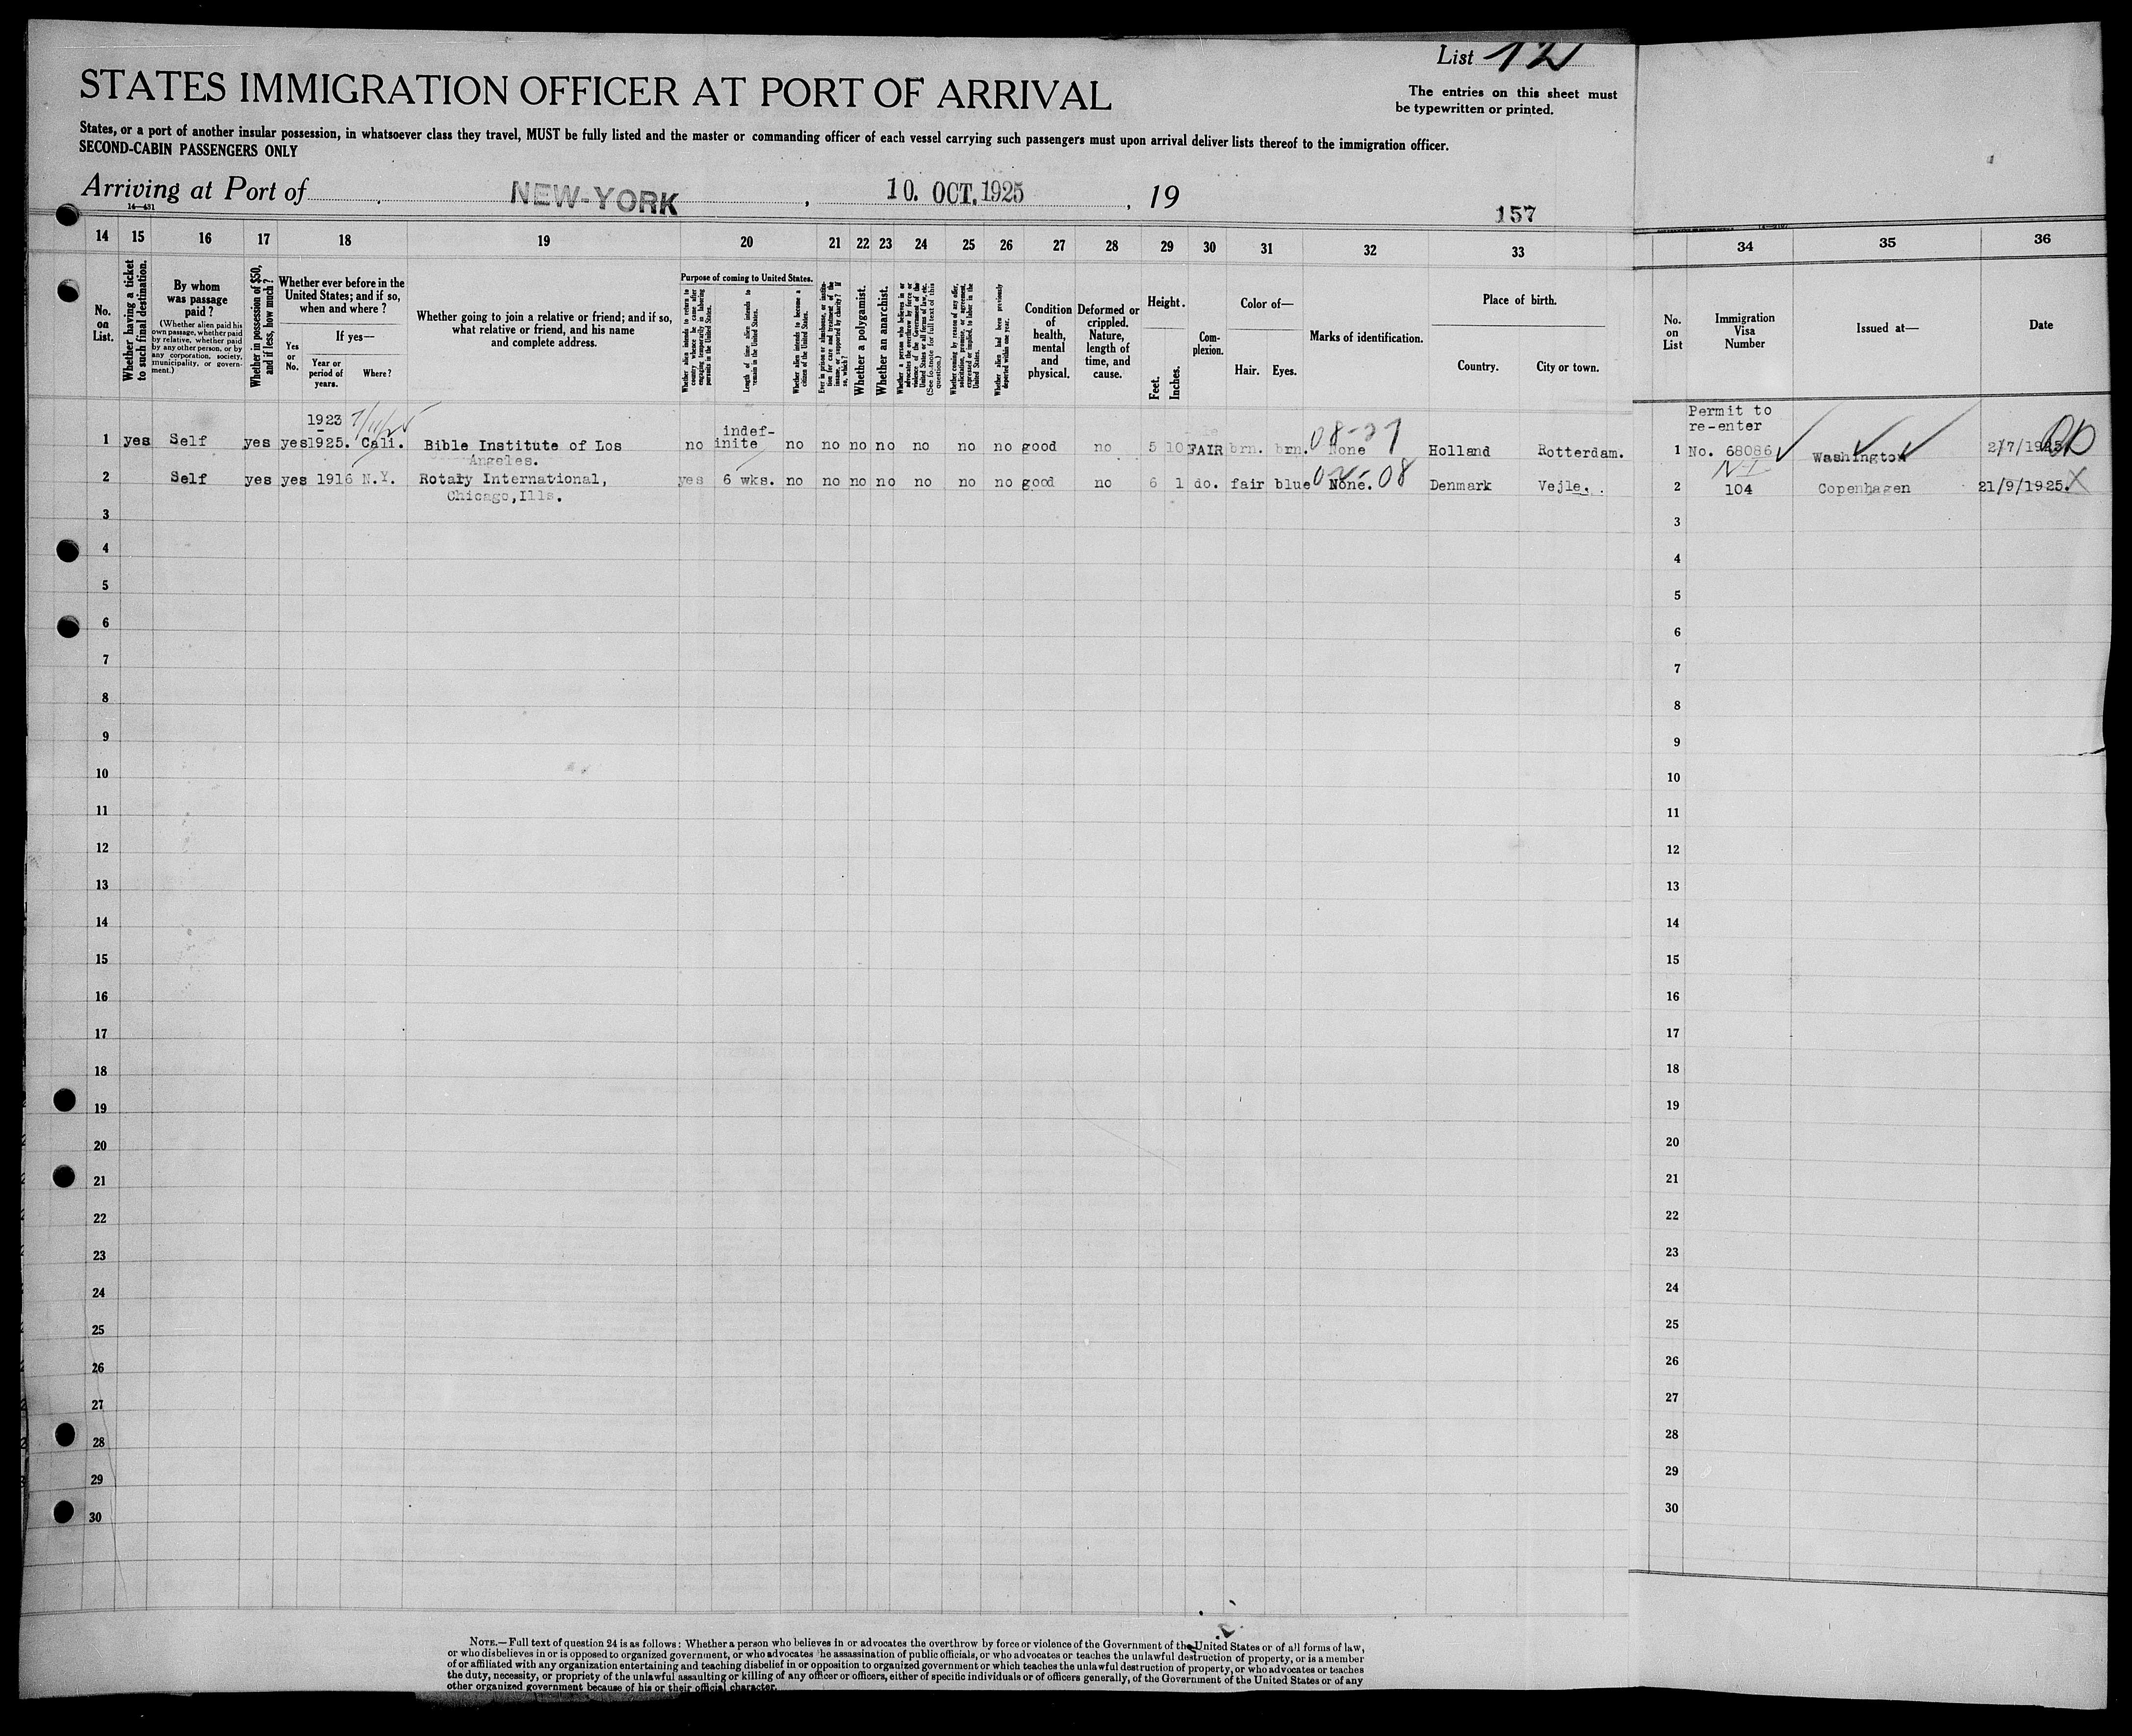 List 12
STATES IMMIGRATION OFFICER AT PORT OF ARRIVAL
The entries on this sheet must
be typewritten or printed.
States, or a port of another insular possession, in whatsoever class they travel, MUST be fully listed and the master or commanding officer of each vessel carrying such passengers must upon arrival deliver lists thereof to the immigration officer.
SECOND-CABIN PASSENGERS ONLY
Arriving at Port of NEW-YORK, 10. OCT. 1925, 19
14—431
157
14 15 16 17 18 19 20 21 22 23 24 25 26 27 28 29 30 31 32 33 34 35 36
No. on List.
Whether having a ticket to such final destination.
By whom was passage paid?
(Whether alien paid his own passage, whether paid by relative, whether paid by any other person, or by any corporation, society, municipality, or government.)
Whether in possession of $50, and if less, how much?
Whether ever before in the United States; and if so, when and where?
Yes or No.
If yes—
Year or period of years.
Where?
Whether going to join a relative or friend; and if so, what relative or friend, and his name and complete address.
Purpose of coming to United States.
Whether alien intends to return to country whence he came after engaging temporarily in laboring pursuits in the United States.
Length of time alien intends to remain in the United States.
Whether alien intends to become a citizen of the United States.
Ever in prison or almshouse, or institution for care and treatment of the insane, or supported by charity? If so, which?
Whether a polygamist.
Whether an anarchist.
Whether a person who believes in or advocates the overthrow by force or violence of the Government of the United States or all forms of law, etc. (See footnote for full text of this question.)
Whether coming by reason of any offer, solicitation, promise, or agreement, expressed or implied, to labor in the United States.
Whether alien had been previously deported within one year.
Condition of health, mental and physical.
Deformed or crippled. Nature, length of time, and cause.
Height.
Feet. Inches.
Complexion.
Color of—
Hair. Eyes.
Marks of identification.
Place of birth.
Country. City or town.
No. on List
Immigration Visa Number
Issued at—
Date
1923 7/11/25 indef- 08-27 Permit to
re-enter
1 yes Self yes yes 1925. Cali. Bible Institute of Los no inite no no no no no no no good no 5 10 FAIR brn. brn. None Holland Rotterdam. 1 No. 68086 Washington 2/7/1925
Angeles. N-I
2 Self yes yes 1916 N.Y. Rotary International, yes 6 wks. no no no no no no no good no 6 1 do. fair blue None. 08 Denmark Vejle. 2 104 Copenhagen 21/9/1925. X
Chicago, Ills.
3 3
4 4
5 5
6 6
7 7
8 8
9 9
10 10
11 11
12 12
13 13
14 14
15 15
16 16
17 17
18 18
19 19
20 20
21 21
22 22
23 23
24 24
25 25
26 26
27 27
28 28
29 29
30 30
NOTE.—Full text of question 24 is as follows: Whether a person who believes in or advocates the overthrow by force or violence of the Government of the United States or of all forms of law,
or who disbelieves in or is opposed to organized government, or who advocates the assassination of public officials, or who advocates or teaches the unlawful destruction of property, or is a member
of or affiliated with any organization entertaining and teaching disbelief in or opposition to organized government or which teaches the unlawful destruction of property, or who advocates or teaches
the duty, necessity, or propriety of the unlawful assaulting or killing of any officer or officers, either of specific individuals or of officers generally, of the Government of the United States or of any
other organized government because of his or their official character.